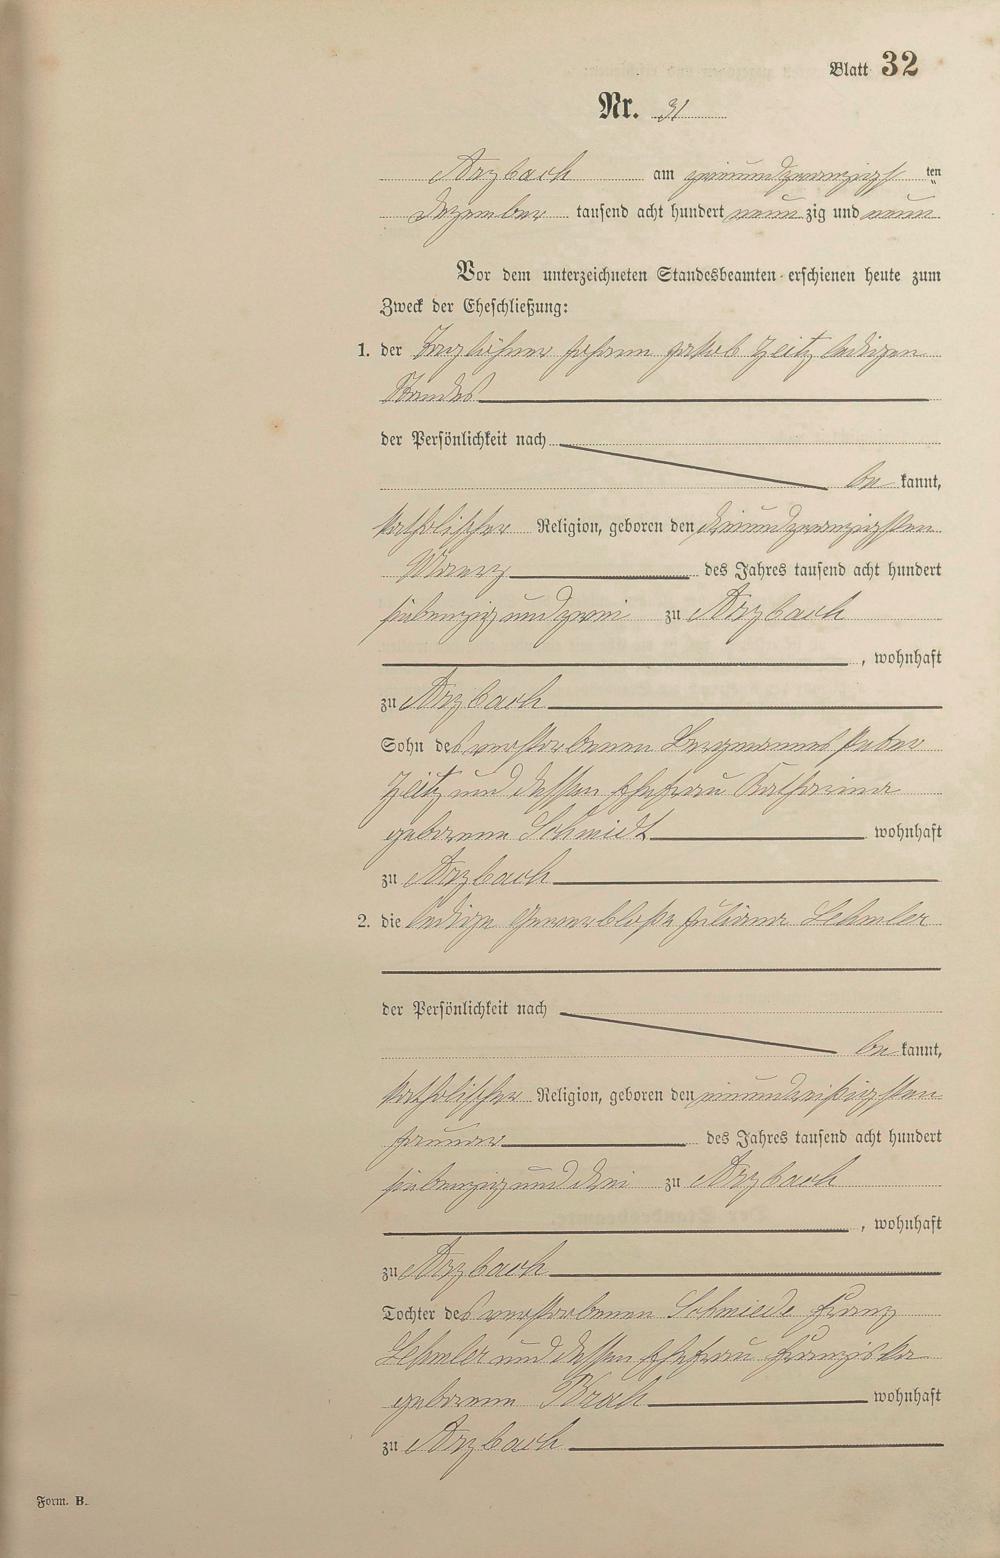 Blatt 32
Nr. 31
Arzbach am zweiundzwanzigsten
Dezember tausend acht hundert neunzig und neun
Vor dem unterzeichneten Standesbeamten erschienen heute zum
Zweck der Eheschließung:
1. der Taglöhner Johann Jakob Zeitz ledigen
Standes
der Persönlichkeit nach
bekannt,
katholischer Religion, geboren den dreiundzwanzigsten
Maerz des Jahres tausend acht hundert
siebenzig und zwei zu Arzbach
, wohnhaft
zu Arzbach
Sohn des verstorbenen Bergmannes Peter
Zeitz und dessen Ehefrau Katharina
geborene Schmidt wohnhaft
zu Arzbach
2. die ledige Gewerblose Juliana Lehmler
der Persönlichkeit nach
bekannt,
katholischer Religion, geboren den einunddreißigsten
Januar des Jahres tausend acht hundert
siebenzig und drei zu Arzbach
, wohnhaft
zu Arzbach
Tochter des verstorbenen Schmiede Franz
Lehmler und dessen Ehefrau Franziska
geborene wohnhaft
zu Arzbach
Form. B.